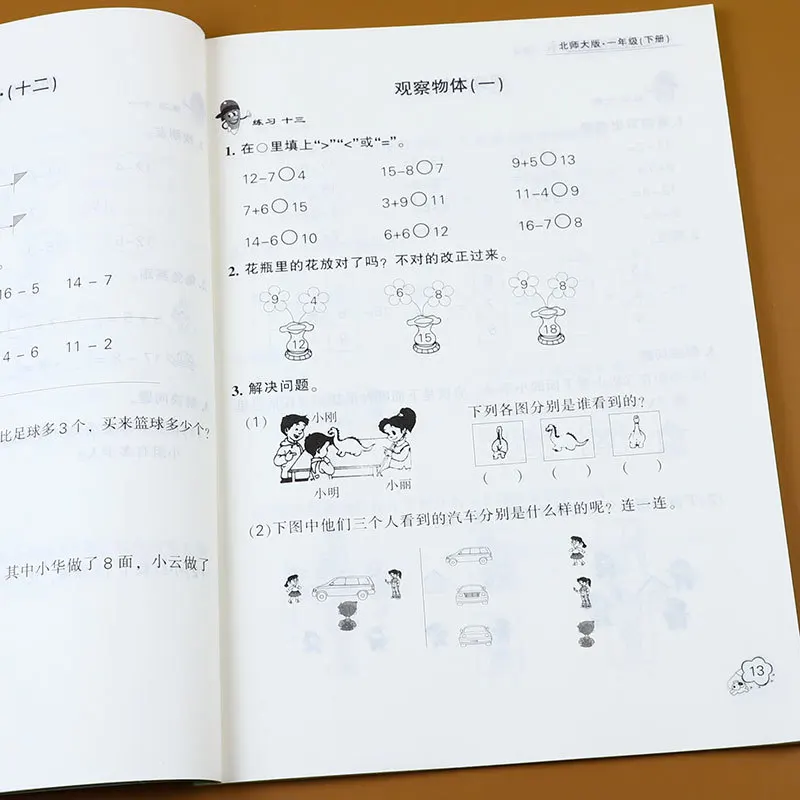 ·(十二)
16-5 14-7
4-6 11-2
比足球多3个，买来篮球多少个？
其中小华做了8面，小云做了
北师大版·一年级(下册)
观察物体(一)
练习 十三
1. 在○里填上“>”“<”或“=”。
12-7○4 15-8○7 9+5○13
7+6○15 3+9○11 11-4○9
14-6○10 6+6○12 16-7○8
2. 花瓶里的花放对了吗？不对的改正过来。
9 4 6 8 9 8
12 15 18
3. 解决问题。
(1) 小刚 下列各图分别是谁看到的？
小明 小丽 ( ) ( ) ( )
(2)下图中他们三个人看到的汽车分别是什么样的呢？连一连。
13